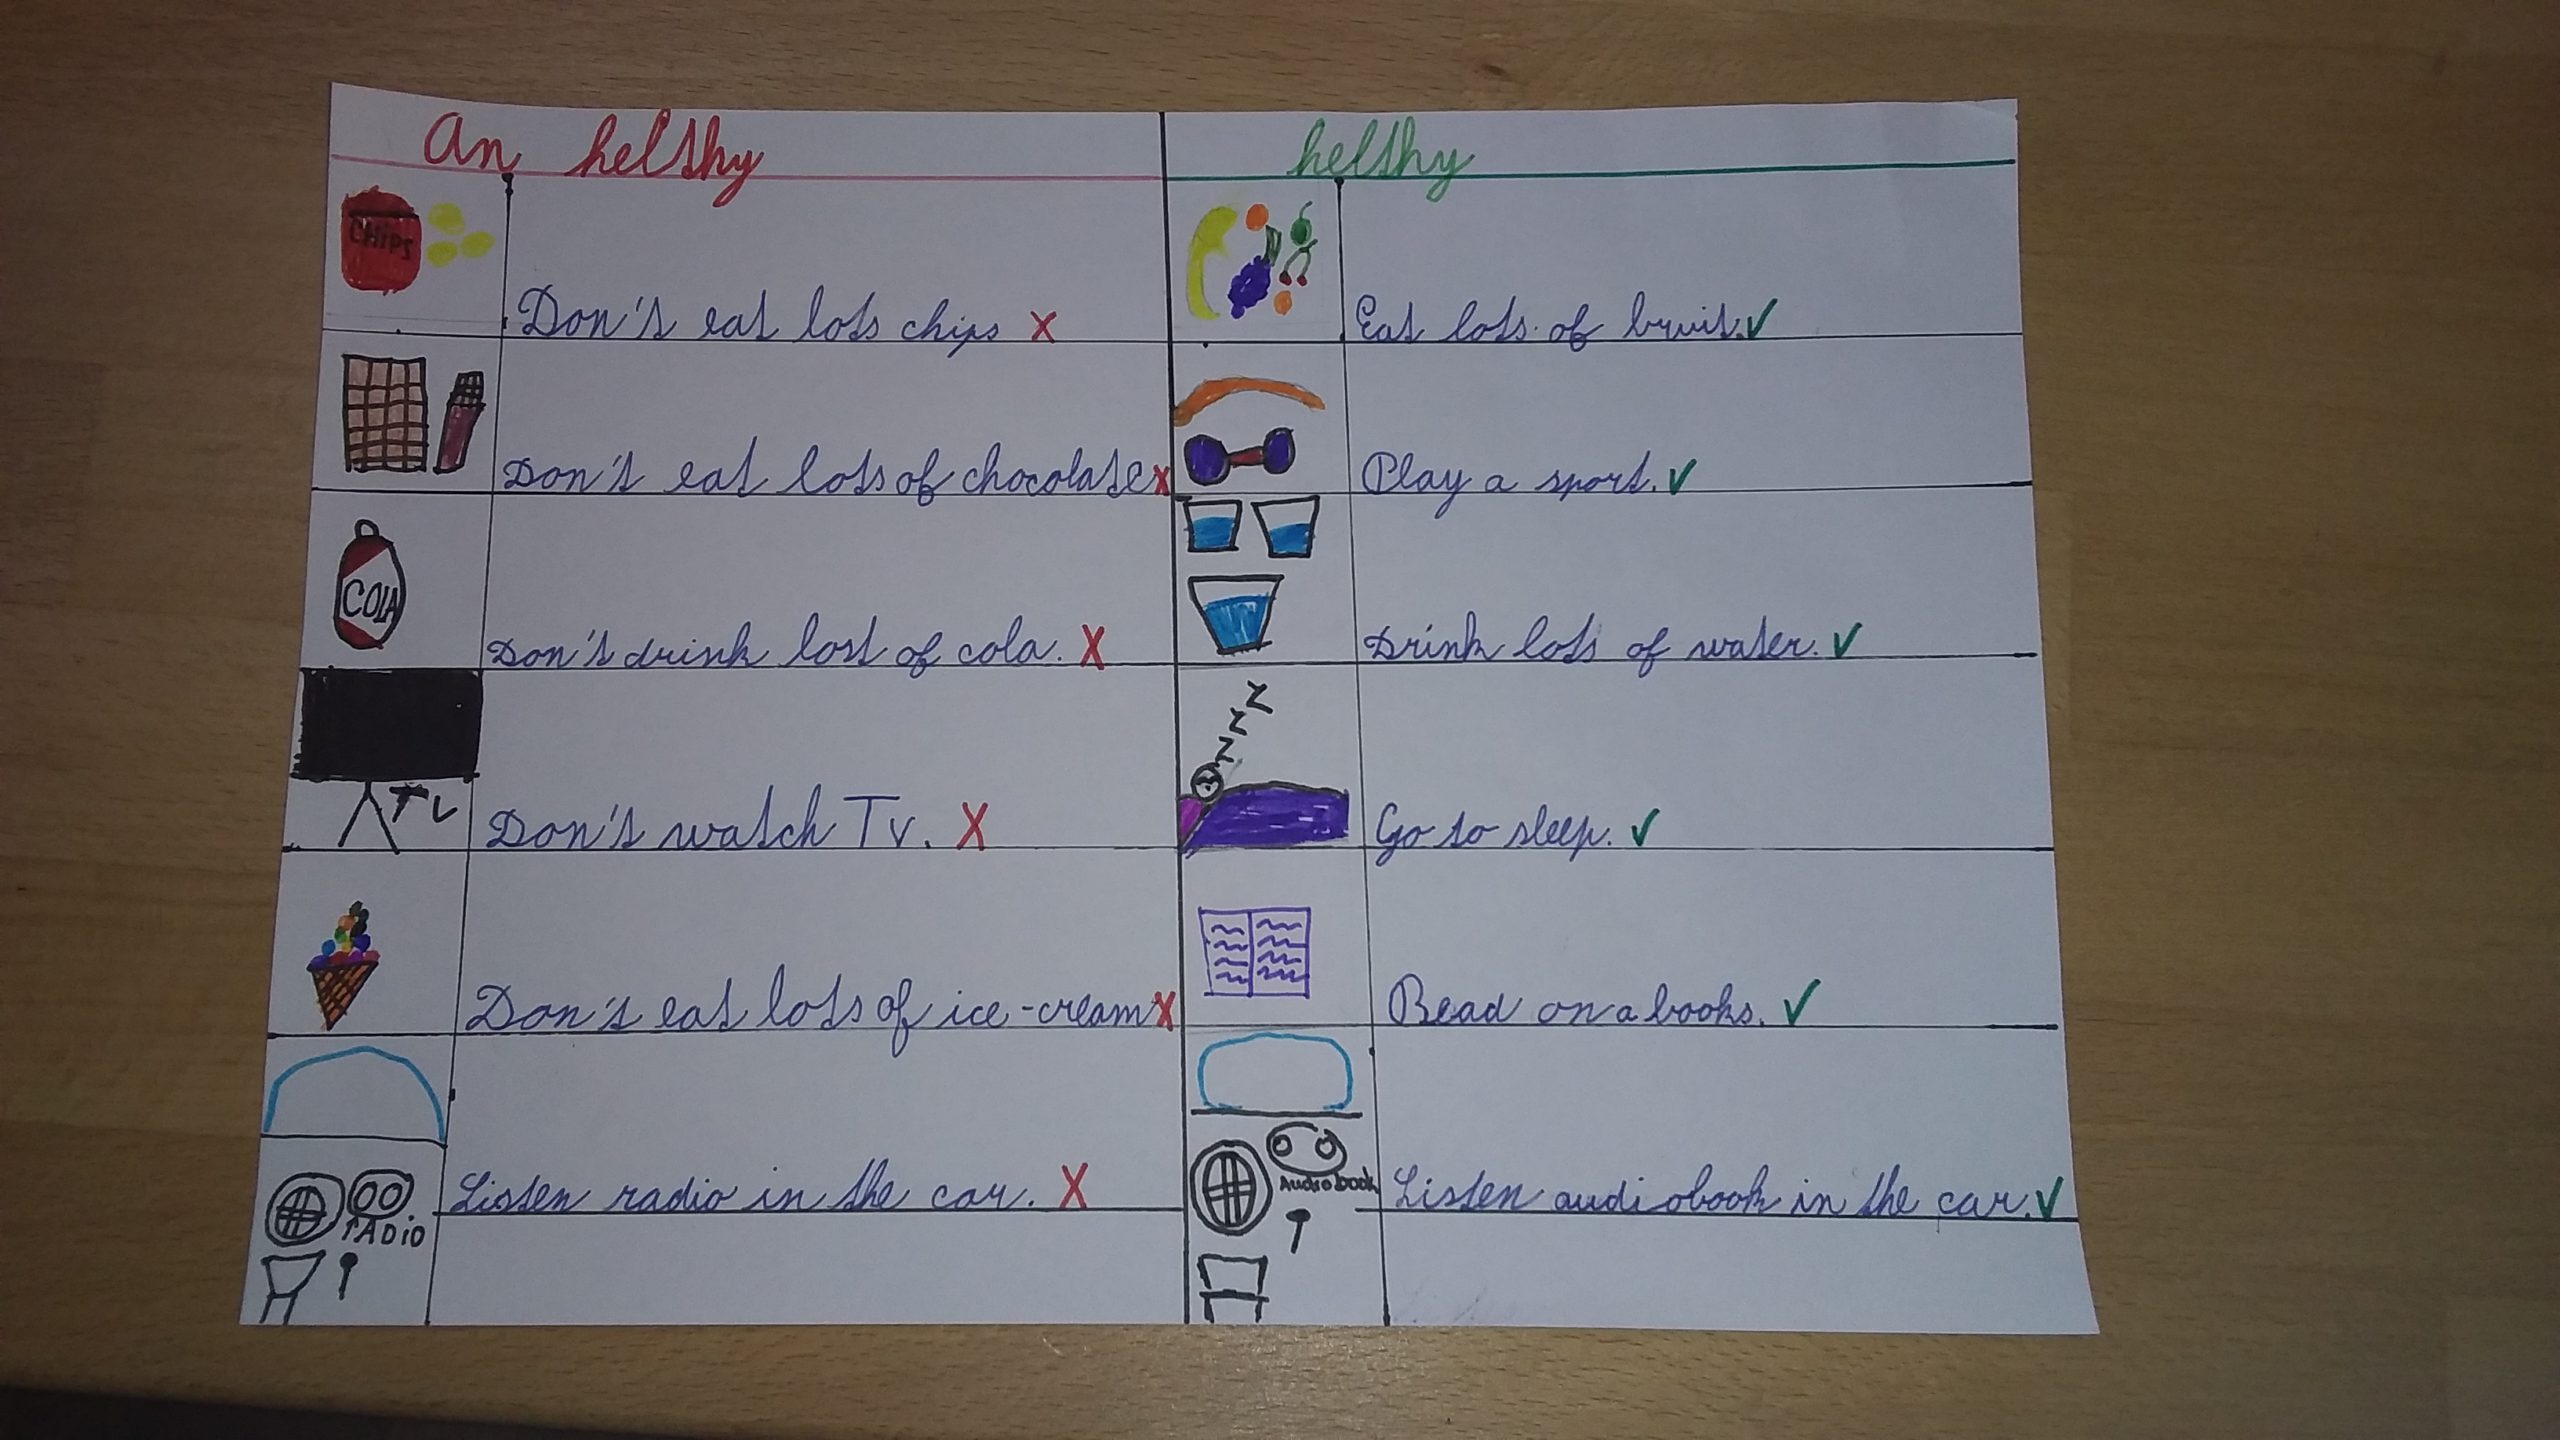 An helthy
helthy
CHiPS
Don't eat lots chips
Eat lots of fruit.
Don't eat lots of chocolate
Play a sport.
COLA
Don't drink lost of cola.
Drink lots of water.
TV
Don't watch Tv.
zzzz
Go to sleep.
Don't eat lots of ice-cream
Read on a books.
rADio
Listen radio in the car.
Audiobook
Listen audiobook in the car.